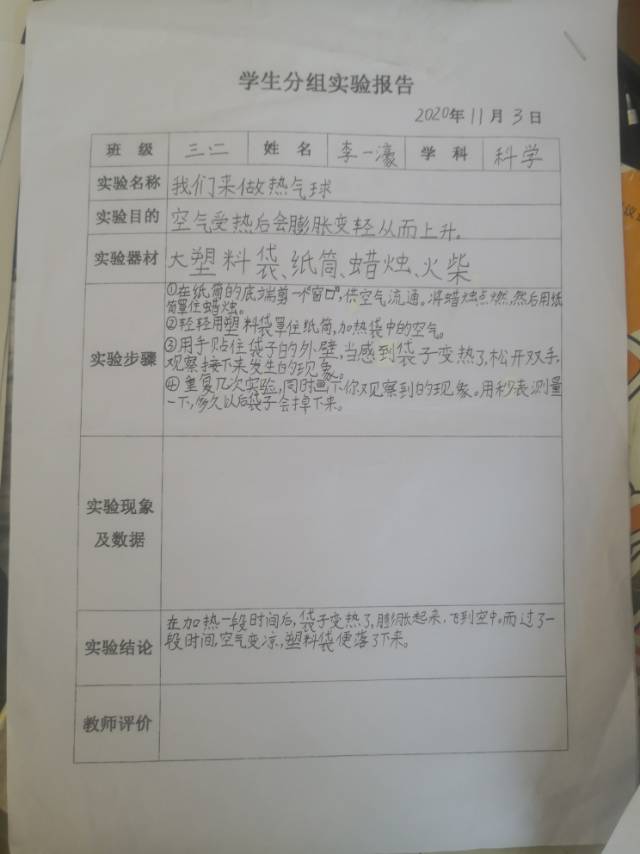 学生分组实验报告
2020年11月3日
班 级 三.二 姓 名 李一濠 学 科 科学
实验名称 我们来做热气球
实验目的 空气受热后会膨胀变轻从而上升。
实验器材 大塑料袋、纸筒、蜡烛、火柴
实验步骤
①在纸筒的底端剪一个"窗口",供空气流通。将蜡烛点燃,然后用纸
筒罩住蜡烛。
②轻轻用塑料袋罩住纸筒,加热袋中的空气。
③用手贴住袋子的外壁,当感到袋子变热了,松开双手,
观察接下来发生的现象。
④重复几次实验,同时画下你观察到的现象。用秒表测量
一下,多久以后袋子会掉下来。
实验现象
及数据
实验结论
在加热一段时间后,袋子变热了,膨胀起来,飞到空中。而过了一
段时间,空气变凉,塑料袋便落了下来。
教师评价